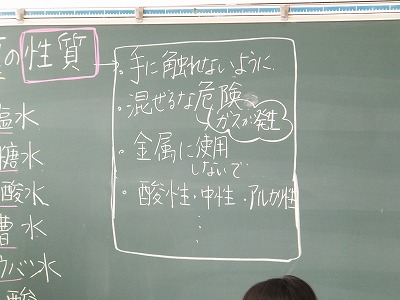 の性質
・手に触れないように
・混ぜるな危険
ガスが発生
・金属に使用
しないで
・酸性・中性・アルカリ性
塩水
糖水
酸水
曹水
ウバン水
酸